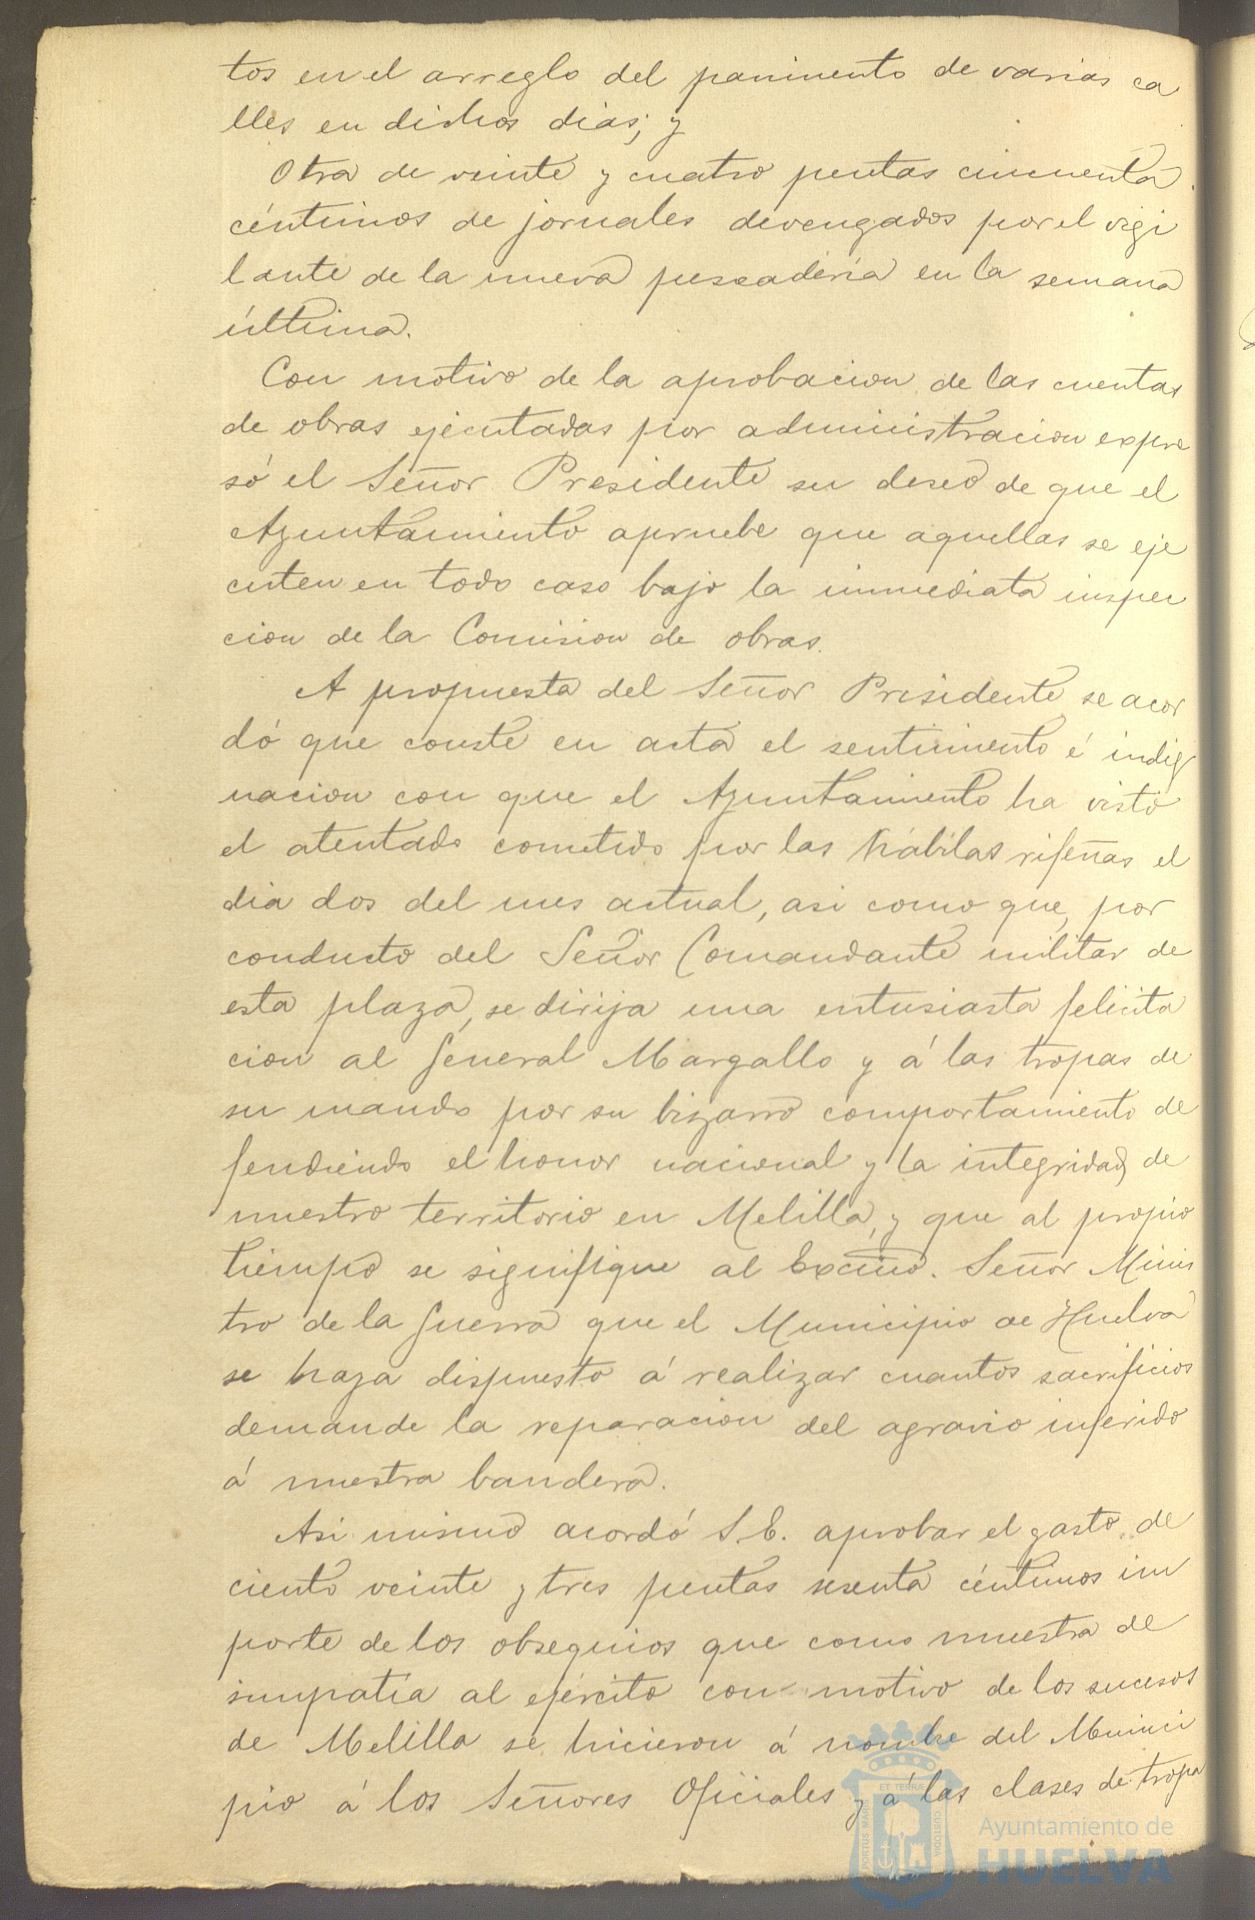 tos en el arreglo del pavimento de varias ca
lles en dichos dias; y
Otra de veinte y cuatro pesetas cincuenta
céntimos de jornales devengados por el vigi
lante de la nueva pescadería en la semana
última.
Con motivo de la aprobacion de las cuentas
de obras ejecutadas por administracion expre
só el Señor Presidente su deseo de que el
Ayuntamiento apruebe que aquellas se eje
cuten en todo caso bajo la inmediata inspec
cion de la Comision de obras.
A propuesta del Señor Presidente se acor
dó que conste en acta el sentimiento é indig
nacion con que el Ayuntamiento ha visto
el atentado cometido por las kábilas rifeñas el
dia dos del mes actual, asi como que, por
conducto del Señor Comandante militar de
esta plaza, se dirija una entusiasta felicita
cion al General Margallo y á las tropas de
su mando por su bizarro comportamiento de
fendiendo el honor nacional y la integridad de
nuestro territorio en Melilla, y que al propio
tiempo se signifique al Excmo. Señor Minis
tro de la Guerra que el Municipio de Huelva
se haya dispuesto á realizar cuantos sacrificios
demande la reparacion del agravio inferido
á nuestra bandera.
Asi mismo acordó S.E. aprobar el gasto de
ciento veinte y tres pesetas sesenta céntimos im
porte de los obsequios que como muestra de
simpatía al ejército con motivo de los sucesos
de Melilla se hicieron á nombre del Munici
pio á los Señores Oficiales y á las clases de tropa
ET TERRAE
PORTUS MARIS
CUSTODIA
Ayuntamiento de
HUELVA